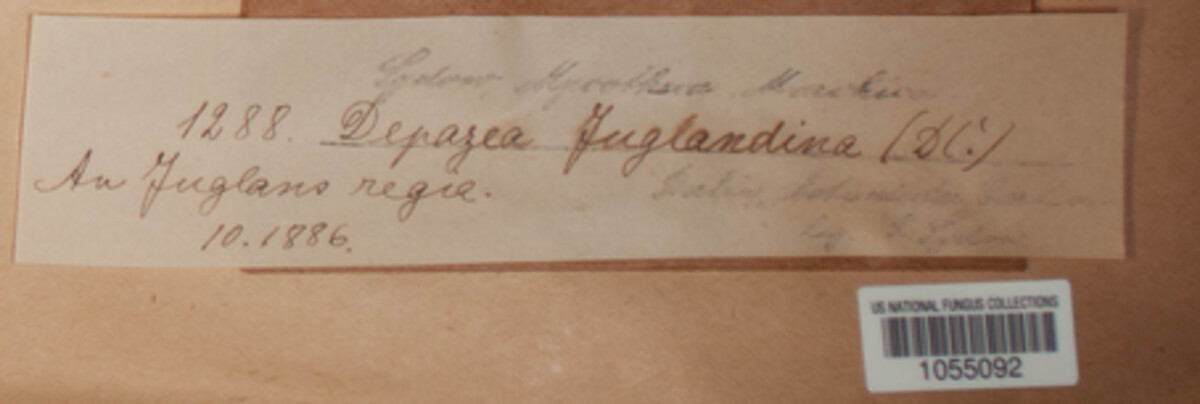 Sydow, Mycotheca Marchica
1288. Depazea Juglandina (DC.)
An Juglans regia.
Berlin, botanischer Garten
10.1886.
leg. P. Sydow.
US NATIONAL FUNGUS COLLECTIONS
1055092